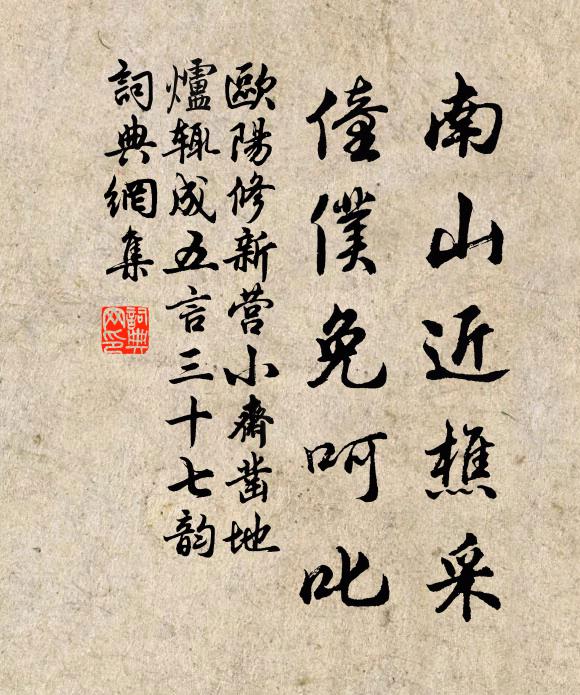 南山近樵采
僮僕免呵叱
歐陽修新营小齋凿地
爐辄成五言三十七韵
詞典網集
詞典
网印